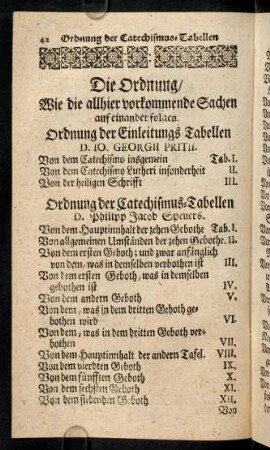 42 Ordnung der Catechismus-Tabellen
Die Ordnung/
Wie die allhier vorkommende Sachen
auf einander folgen.
Ordnung der Einleitungs Tabellen
D. IO. GEORGII PRITII.
Von dem Catechismo insgemein Tab. I.
Von dem Catechismo Lutheri insonderheit II.
Von der heiligen Schrifft III.
Ordnung der Catechismus-Tabellen
D. Philipp Jacob Speners.
Von dem Hauptinnhalt der zehen Gebothe Tab. I.
Von allgemeinen Umständen der zehen Gebothe. II.
Von dem ersten Geboth; und zwar anfänglich
von dem, was in demselben verbothen ist III.
Von dem ersten Geboth, was in demselben
gebothen ist IV.
Von dem andern Geboth V.
Von dem, was in dem dritten Geboth ge-
bothen wird VI.
Von dem, was in dem dritten Geboth ver-
bothen VII.
Von dem Hauptinnhalt der andern Tafel. VIII.
Von dem vierdten Geboth IX.
Von dem fünfften Geboth X.
Von dem sechsten Geboth XI.
Von dem siebenden Geboth XII.
Von